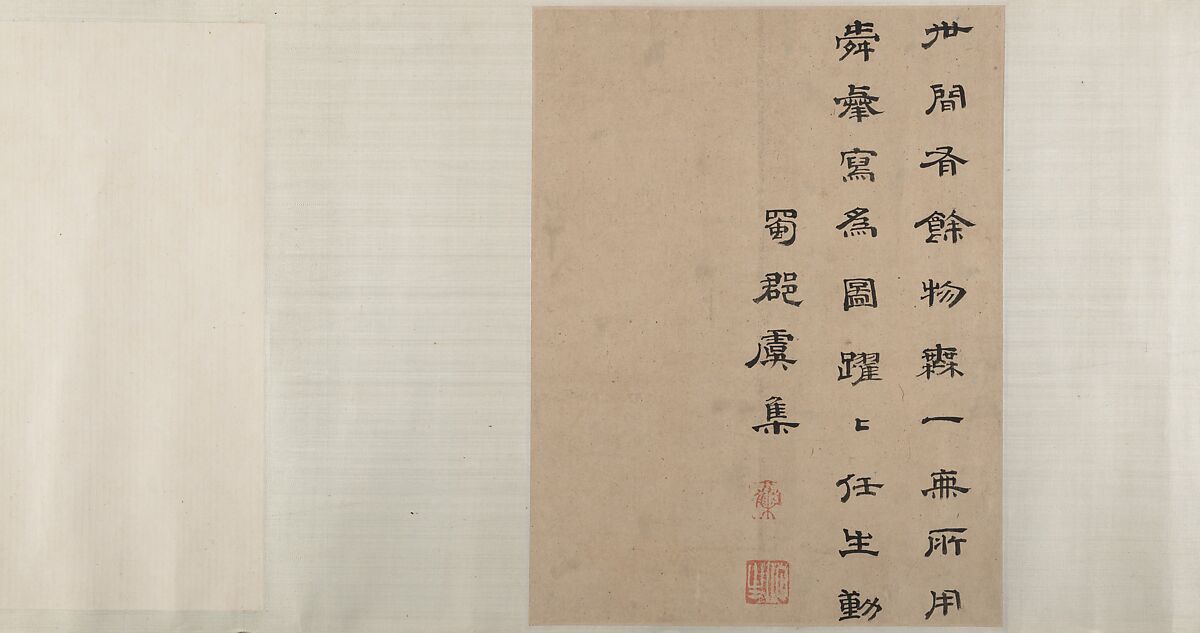 世間有餘物無一無所用
舜舉寫為圖躍〻任生動
蜀郡虞集